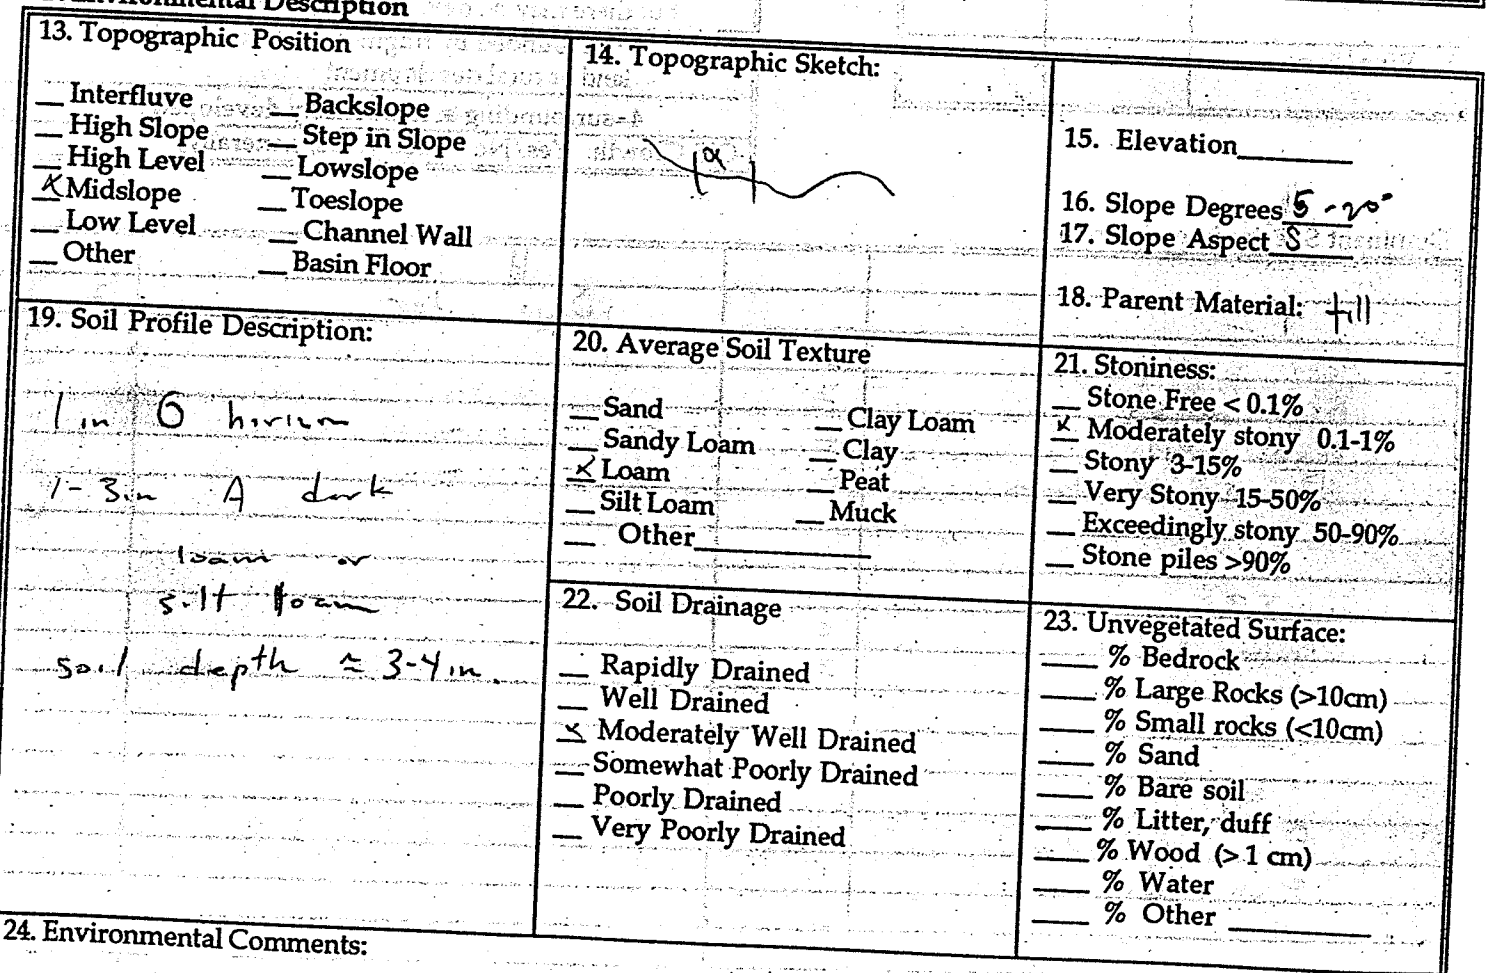 Environmental Description
13. Topographic Position
__ Interfluve __ Backslope
__ High Slope __ Step in Slope
__ High Level __ Lowslope
X Midslope __ Toeslope
__ Low Level __ Channel Wall
__ Other __ Basin Floor
14. Topographic Sketch:
15. Elevation________
16. Slope Degrees 5-20°
17. Slope Aspect S
18. Parent Material: till
19. Soil Profile Description:
1 in O horizon
1-3in A dark
loam or
silt loam
soil depth ≈ 3-4in.
20. Average Soil Texture
__ Sand __ Clay Loam
__ Sandy Loam __ Clay
X Loam __ Peat
__ Silt Loam __ Muck
__ Other____________
21. Stoniness:
__ Stone Free < 0.1%
X Moderately stony 0.1-1%
__ Stony 3-15%
__ Very Stony 15-50%
__ Exceedingly stony 50-90%
__ Stone piles >90%
22. Soil Drainage
__ Rapidly Drained
__ Well Drained
X Moderately Well Drained
__ Somewhat Poorly Drained
__ Poorly Drained
__ Very Poorly Drained
23. Unvegetated Surface:
____ % Bedrock
____ % Large Rocks (>10cm)
____ % Small rocks (<10cm)
____ % Sand
____ % Bare soil
____ % Litter, duff
____ % Wood (> 1 cm)
____ % Water
____ % Other __________
24. Environmental Comments: